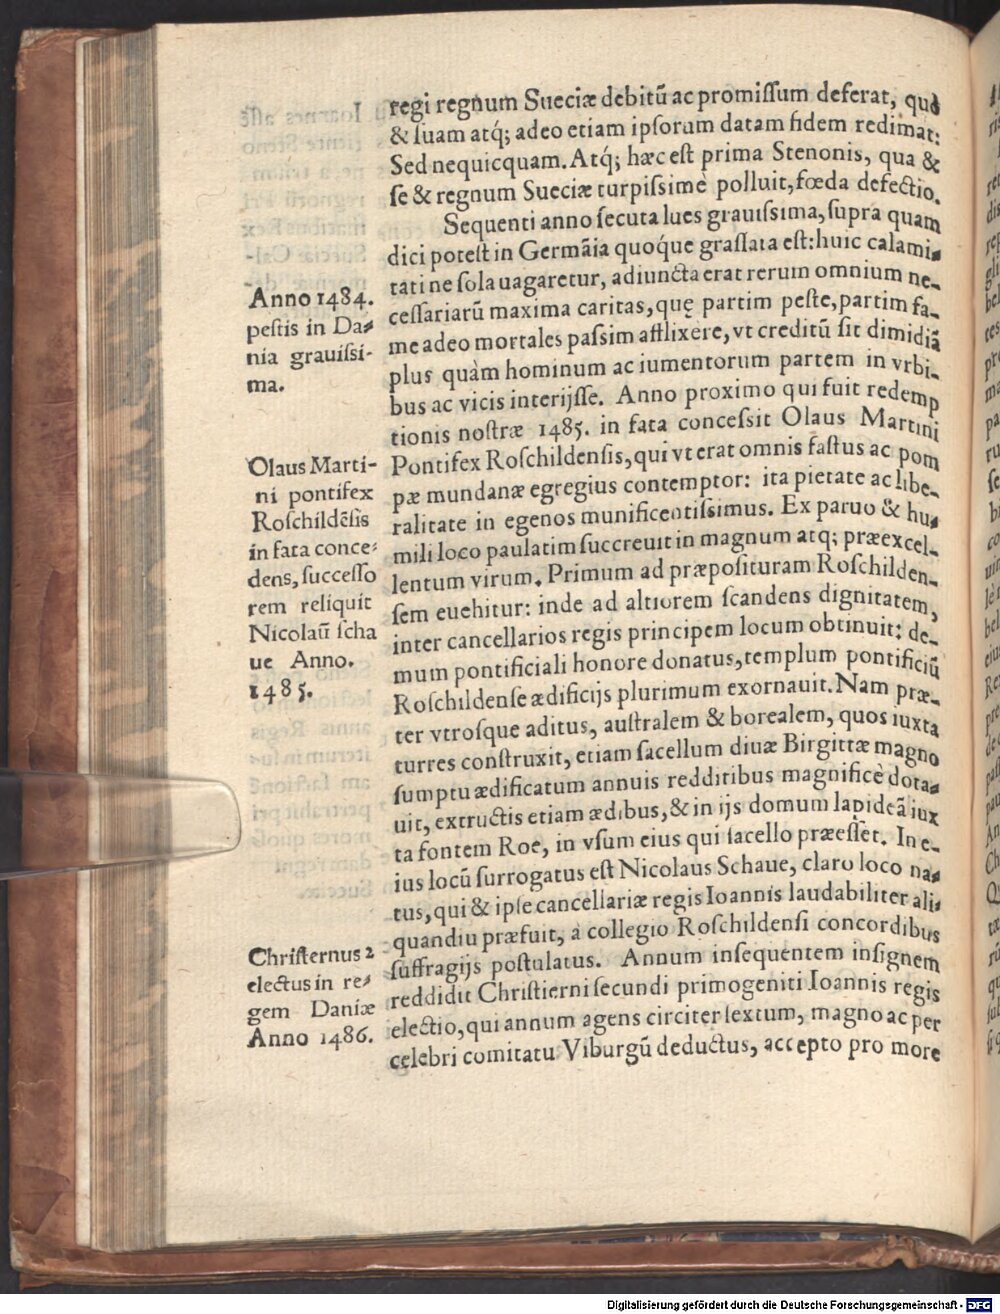 regi regnum Sueciæ debitū ac promissum deferat, quo
& suam atq; adeo etiam ipsorum datam fidem redimat:
Sed nequicquam. Atq; hæc est prima Stenonis, qua &
se & regnum Sueciæ turpissimè polluit, fœda defectio.
Sequenti anno secuta lues grauissima, supra quam
dici potest in Germāia quoq́ue grassata est: huic calami-
tati ne sola uagaretur, adiuncta erat rerum omnium ne-
cessariarū maxima caritas, quę partim peste, partim fa-
me adeo mortales passim afflixere, vt creditū sit dimidiā
plus quàm hominum ac iumentorum partem in vrbi-
bus ac vicis interijsse. Anno proximo qui fuit redemp
tionis nostræ 1485. in fata concessit Olaus Martini
Pontifex Roschildensis, qui vt erat omnis fastus ac pom
pæ mundanæ egregius contemptor: ita pietate ac libe-
ralitate in egenos munificentissimus. Ex paruo & hu-
mili loco paulatim succreuit in magnum atq; præexcel-
lentum virum. Primum ad præposituram Roschilden-
sem euehitur: inde ad altiorem scandens dignitatem,
inter cancellarios regis principem locum obtinuit: de-
mum pontificiali honore donatus, templum pontificiū
Roschildense ædificijs plurimum exornauit. Nam præ-
ter vtrosque aditus, australem & borealem, quos iuxta
turres construxit, etiam sacellum diuæ Birgittæ magno
sumptu ædificatum annuis redditibus magnificè dota-
uit, extructis etiam ædibus, & in ijs domum lapideā iux
ta fontem Roe, in vsum eius qui sacello præesset. In e-
ius locū surrogatus est Nicolaus Schaue, claro loco na-
tus, qui & ipse cancellariæ regis Ioannis laudabiliter ali-
quandiu præfuit, a collegio Roschildensi concordibus
suffragijs postulatus. Annum insequentem insignem
reddidit Christierni secundi primogeniti Ioannis regis
electio, qui annum agens circiter sextum, magno ac per
celebri comitatu Viburgū deductus, accepto pro more
Anno 1484.
pestis in Da-
nia grauissi-
ma.
Olaus Marti-
ni pontifex
Roschildēsis
in fata conce-
dens, successo
rem reliquit
Nicolaū scha
ue Anno.
1485.
Christernus 2
electus in re-
gem Daniæ
Anno 1486.
Digitalisierung gefördert durch die Deutsche Forschungsgemeinschaft - DFG